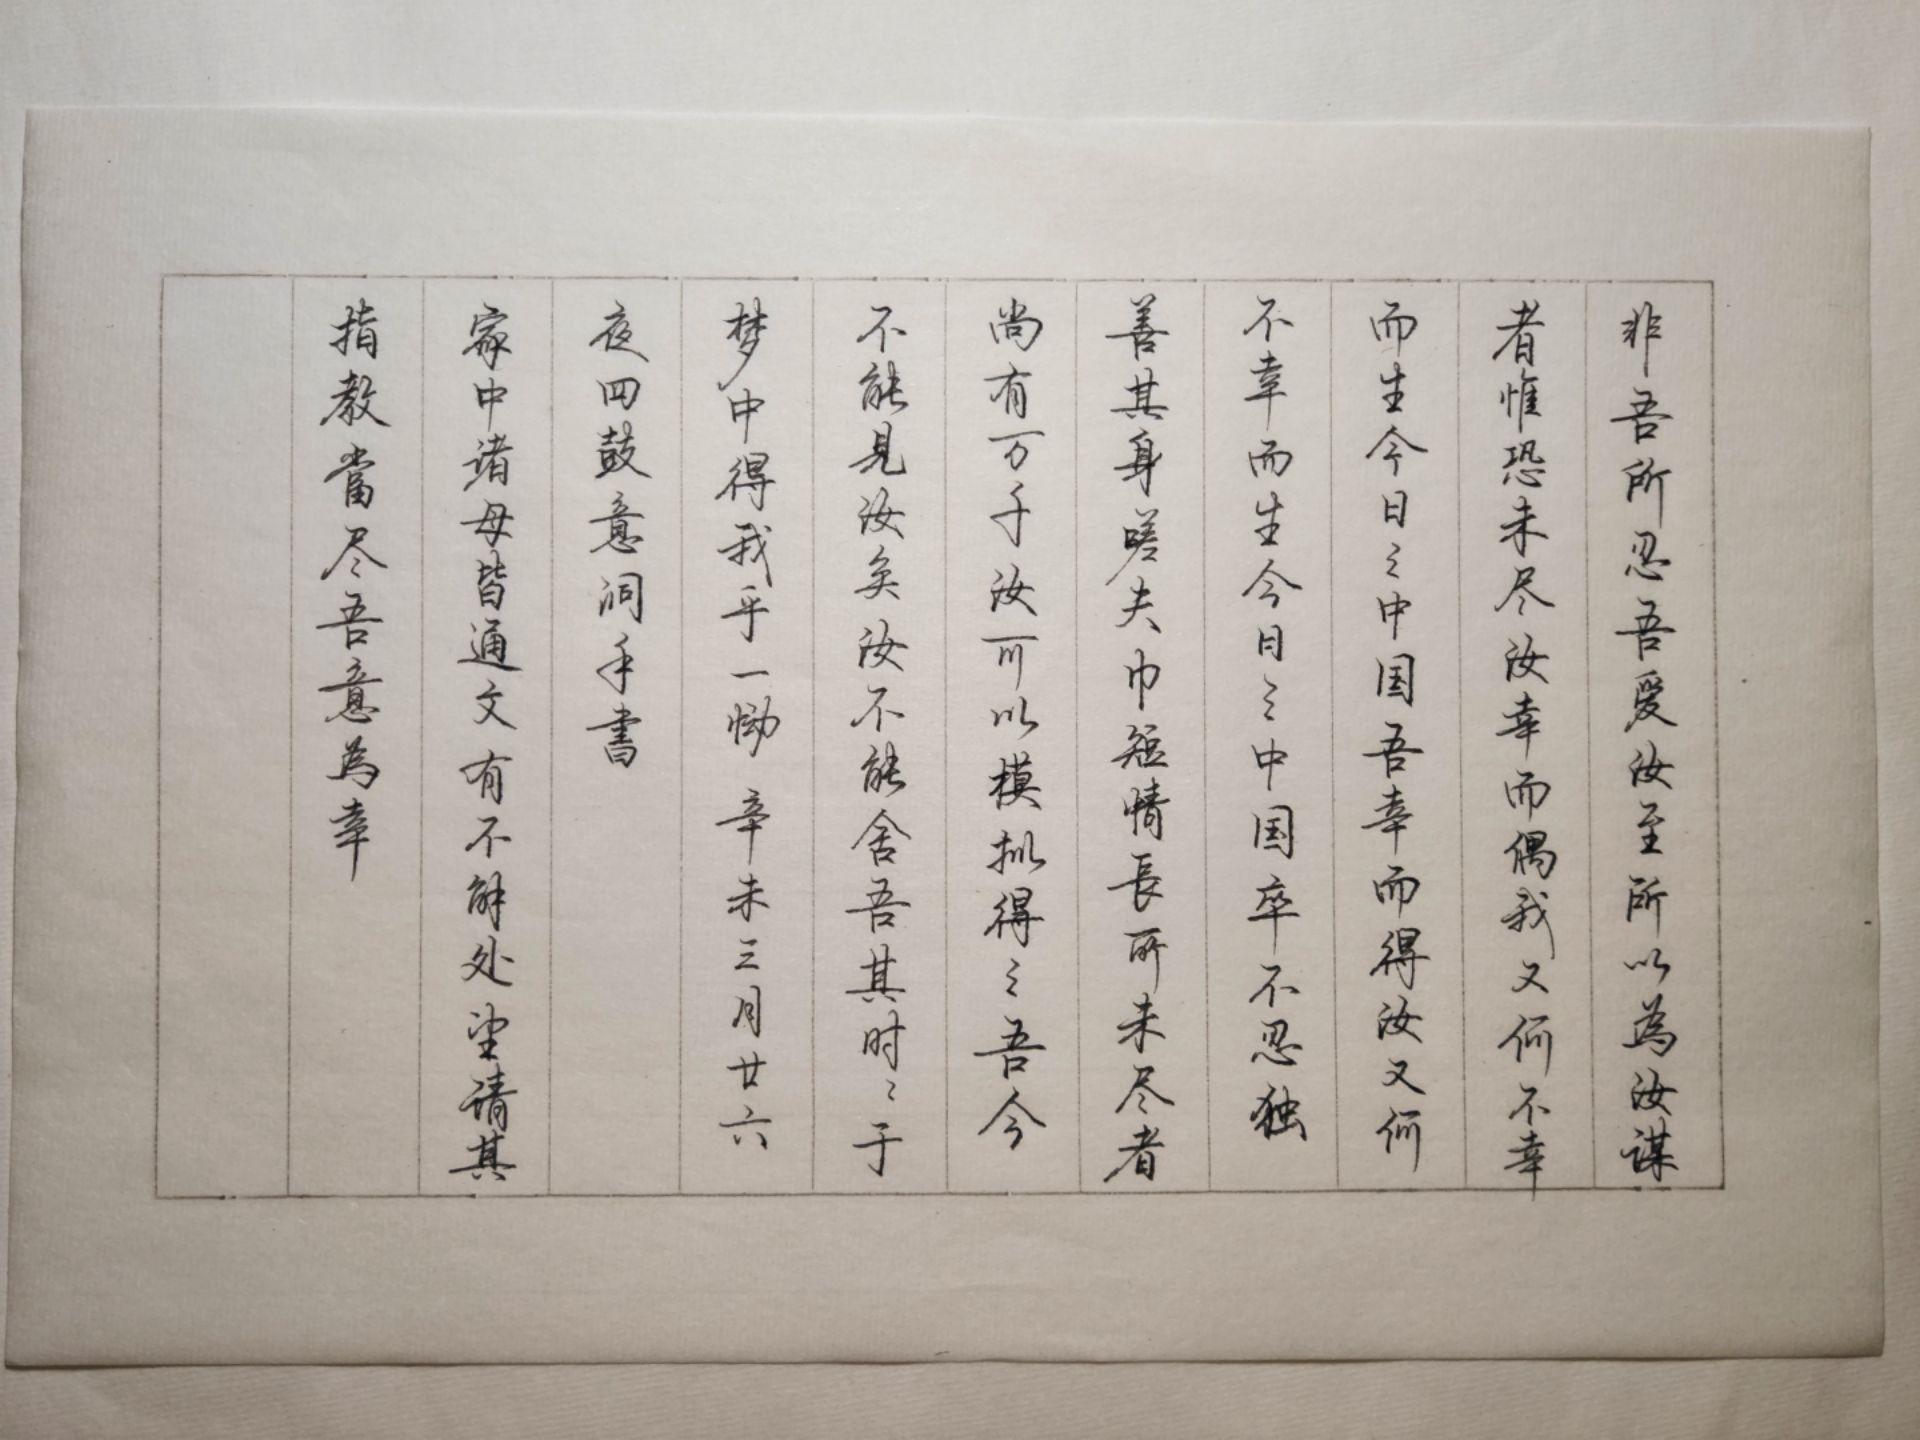 非吾所忍吾爱汝至所以為汝谋
者惟恐未尽汝幸而偶我又何不幸
而生今日之中国吾幸而得汝又何
不幸而生今日之中国卒不忍独
善其身嗟夫巾短情長所未尽者
尚有万千汝可以模拟得之吾今
不能見汝矣汝不能舍吾其时时于
梦中得我乎一恸 辛未三月廿六
夜四鼓意洞手書
家中诸母皆通文有不解处望请其
指教當尽吾意為幸